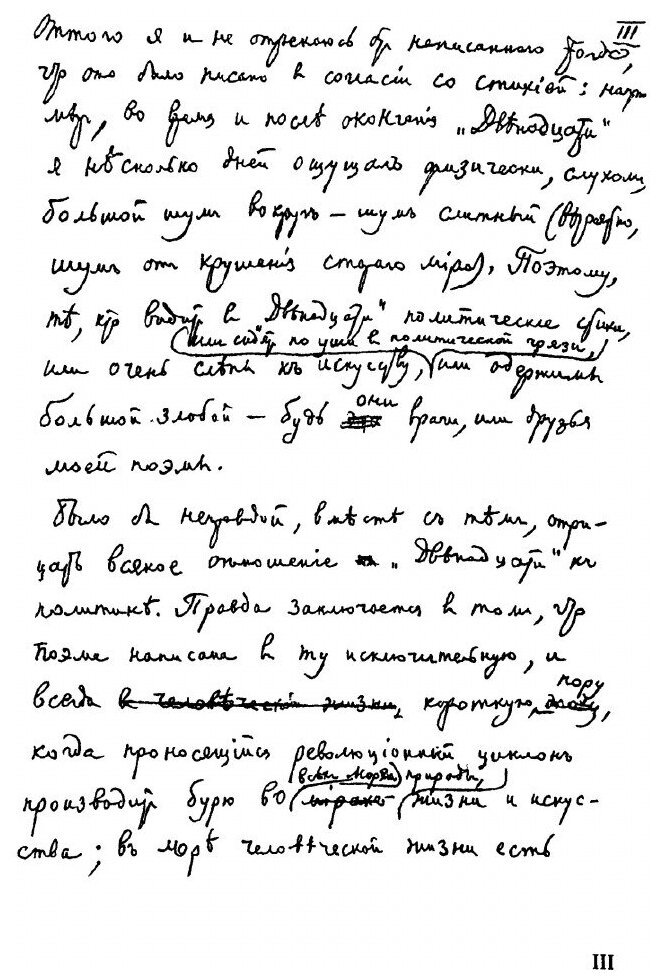 III
Оттого я и не отрекаюсь от написаннаго тогда,
что оно было писано в согласіи со стихіей: напри-
мѣр, во время и послѣ окончанія „Двѣнадцати"
я нѣсколько дней ощущалъ физически, слухом,
большой шумъ вокругъ — шумъ слитный (вѣроятно,
шумъ от крушенія стараго міра). Поэтому,
тѣ, кто видит в Двѣнадцати" политическіе стихи,
или сидят по уши в политической грязи,
или очень слѣпы къ искусству, или одержимы
большой злобой — будь они враги, или друзья
моей поэмы.
Было бы неправдой, вмѣстѣ съ тѣмъ, отри-
цать всякое отношеніе „Двѣнадцати" къ
политикѣ. Правда заключается в том, что
поэма написана в ту исключительную, и
всегда в человѣческой жизни, короткую, пору,
когда проносящійся революціонный циклонъ
производит бурю во всѣх моряхъ природы, жизни и искус-
ства; въ морѣ человѣческой жизни есть
III